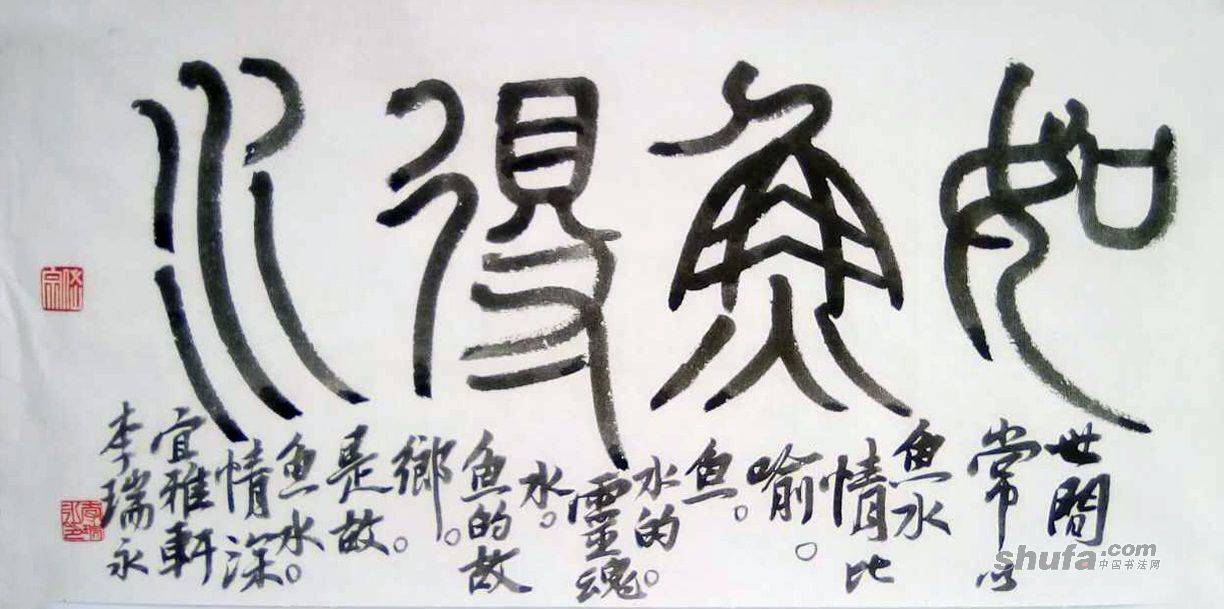 如魚得水
世間
常以
魚水
情比
喻。
魚。
水的
靈魂。
水。
魚的故
鄉。
是故。
魚水
情深。
宜雅軒
李瑞永
shufa.com
中国书法网